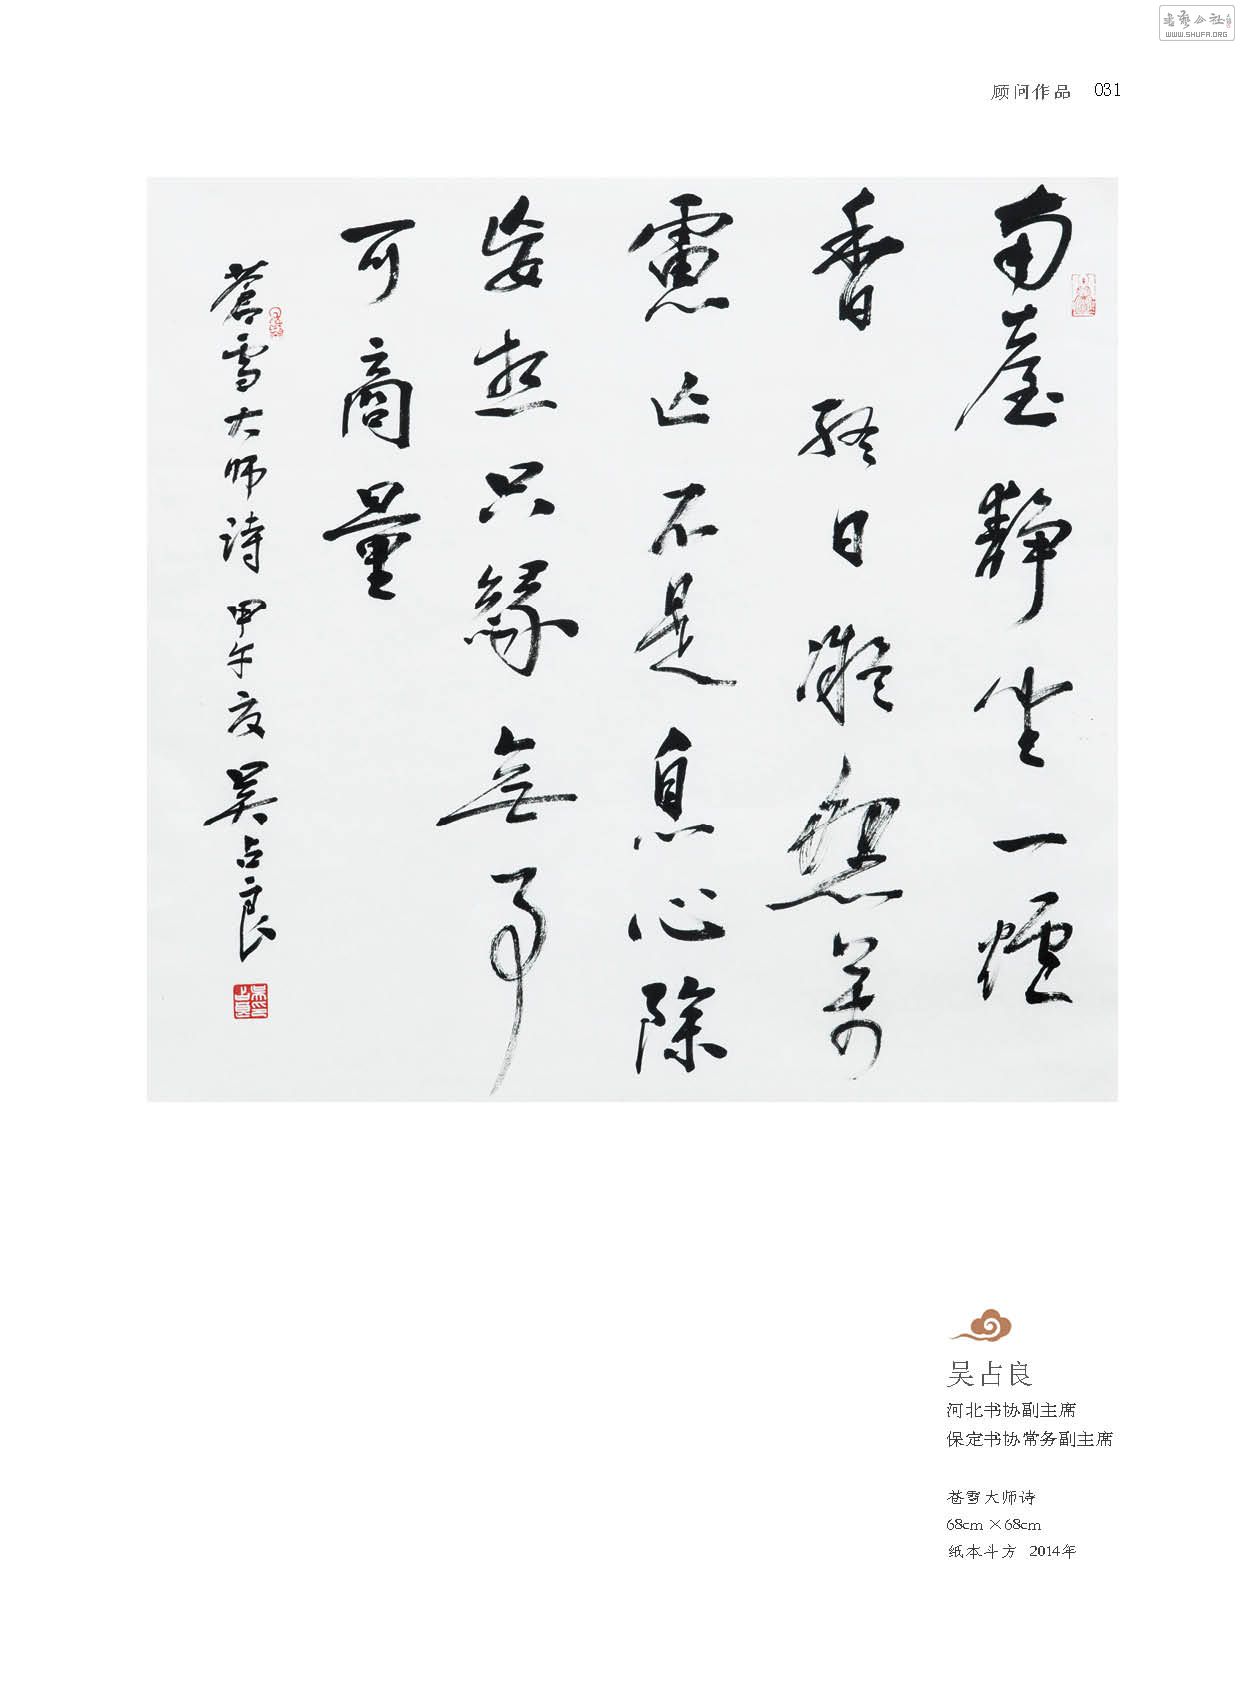 書藝公社
WWW.SHUFA.ORG
顾问作品 031
南臺靜坐一爐
香終日凝然萬
慮亡不是息心除
妄想只緣無事
可商量
蒼雪大师詩 甲午夏 吴占良
吴占良
河北书协副主席
保定书协常务副主席
苍雪大师诗
68cm×68cm
纸本斗方 2014年